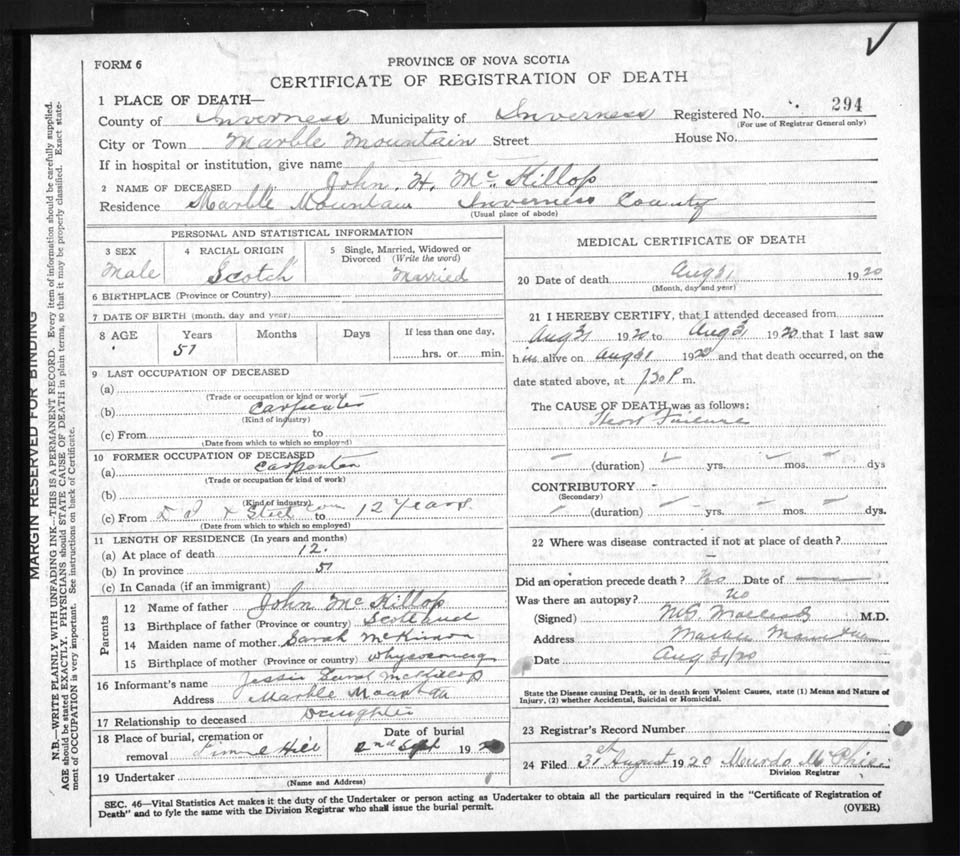 FORM 6
PROVINCE OF NOVA SCOTIA
CERTIFICATE OF REGISTRATION OF DEATH
1 PLACE OF DEATH—
294
County of Inverness Municipality of Inverness Registered No.
(For use of Registrar General only)
City or Town Marble Mountain Street House No.
If in hospital or institution, give name
2 NAME OF DECEASED John. H. Mc. Killop
Residence Marble Mountain Inverness County
(Usual place of abode)
PERSONAL AND STATISTICAL INFORMATION
3 SEX 4 RACIAL ORIGIN 5 Single, Married, Widowed or Divorced (Write the word)
Male Scotch Married
6 BIRTHPLACE (Province or Country)
7 DATE OF BIRTH (month, day and year)
8 AGE Years Months Days If less than one day,
51 hrs. or min.
9 LAST OCCUPATION OF DECEASED
(a)
(Trade or occupation or kind or work)
(b) Carpenter
(Kind of industry)
(c) From to
(Date from which to which so employed)
10 FORMER OCCUPATION OF DECEASED
(a) Carpenter
(Trade or occupation or kind of work)
(b)
(Kind of industry)
(c) From Steel to 12 Years.
(Date from which to which so employed)
11 LENGTH OF RESIDENCE (In years and months)
(a) At place of death 12.
(b) In province 51
(c) In Canada (if an immigrant)
Parents
12 Name of father John McKillop
13 Birthplace of father (Province or country) Scotland
14 Maiden name of mother Sarah McKinnon
15 Birthplace of mother (Province or country)
16 Informant's name Jessie McKillop
Address Marble Mount
17 Relationship to deceased Daughter
18 Place of burial, cremation or removal Hill
Date of burial
2nd Sept 1920
19 Undertaker
(Name and Address)
MEDICAL CERTIFICATE OF DEATH
20 Date of death Aug 31 1920
(Month, day and year)
21 I HEREBY CERTIFY, that I attended deceased from
Aug 31 1920 to Aug 31 1920 that I last saw
him alive on Aug 31 1920 and that death occurred, on the
date stated above, at 7.30 P. m.
The CAUSE OF DEATH was as follows:
Heart Failure
(duration) yrs. mos. dys
CONTRIBUTORY
(Secondary)
(duration) yrs. mos. dys
22 Where was disease contracted if not at place of death?
Did an operation precede death? No Date of
Was there an autopsy? no
(Signed) M.D.
Address Marble Mountain
Date Aug 31/20
State the Disease causing Death, or in death from Violent Causes, state (1) Means and Nature of
Injury, (2) whether Accidental, Suicidal or Homicidal.
23 Registrar's Record Number
24 Filed 31st August 1920 Murdo
Division Registrar
SEC. 46—Vital Statistics Act makes it the duty of the Undertaker or person acting as Undertaker to obtain all the particulars required in the "Certificate of Registration of
Death" and to fyle the same with the Division Registrar who shall issue the burial permit.
(OVER)
MARGIN RESERVED FOR BINDING
N.B.—WRITE PLAINLY WITH UNFADING INK—THIS IS A PERMANENT RECORD. Every item of information should be carefully supplied.
AGE should be stated EXACTLY. PHYSICIANS should STATE CAUSE OF DEATH in plain terms, so that it may be properly classified. Exact state-
ment of OCCUPATION is very important. See instructions on back of Certificate.